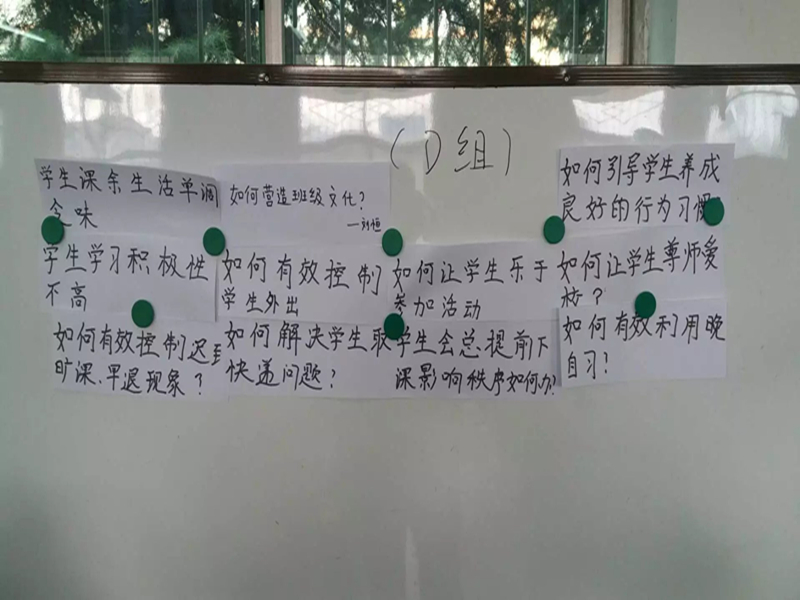 （D组）
学生课余生活单调
乏味
学生学习积极性
不高
如何有效控制迟到
旷课、早退现象？
如何营造班级文化？
如何有效控制
学生外出
如何解决学生取
快递问题？
如何让学生乐于
参加活动
学生会总提前下
课影响秩序如何办？
如何引导学生养成
良好的行为习惯
如何让学生尊师爱
校？
如何有效利用晚
自习？